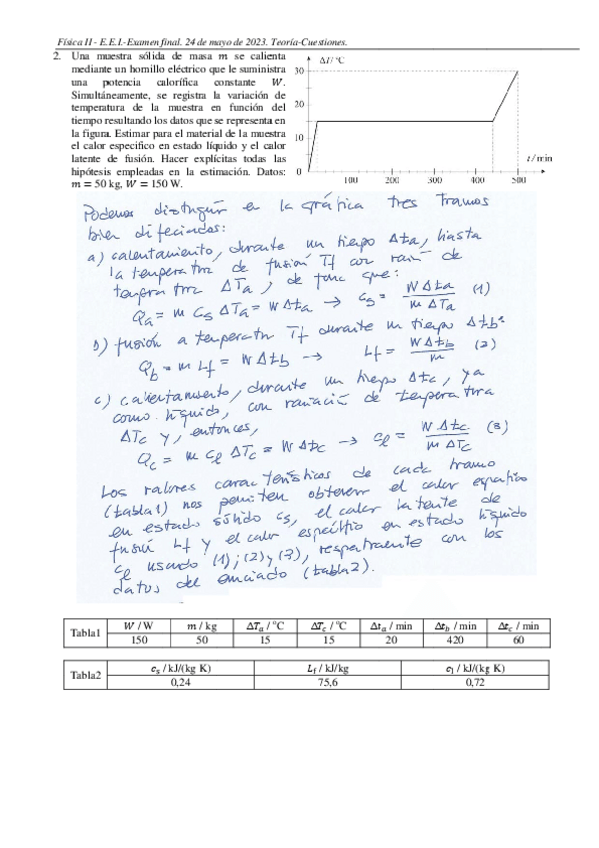 Física II - E.E.I.-Examen final. 24 de mayo de 2023. Teoría-Cuestiones.
2. Una muestra sólida de masa m se calienta
mediante un hornillo eléctrico que le suministra
una potencia calorífica constante W.
Simultáneamente, se registra la variación de
temperatura de la muestra en función del
tiempo resultando los datos que se representa en
la figura. Estimar para el material de la muestra
el calor especifico en estado líquido y el calor
latente de fusión. Hacer explícitas todas las
hipótesis empleadas en la estimación. Datos:
m = 50 kg, W = 150 W.
ΔT/ °C
30
20
10
0
100 200 300 400 500
t / min
Podemos distinguir en la gráfica tres tramos
bien difeciados:
a) calentamiento, durante un tiempo Δta, hasta
la temperatura de fusión Tf con variac de
temperatura ΔTa, de forma que:
Qa = m cs ΔTa = W Δta → cs = W Δta / m ΔTa (1)
b) fusión a temperatura Tf durante un tiempo Δtb:
Qb = m Lf = W Δtb → Lf = W Δtb / m (2)
c) calentamiento, durante un tiempo Δtc, ya
como líquido, con variación de temperatura
ΔTc y, entonces,
Qc = m cl ΔTc = W Δtc → cl = W Δtc / m ΔTc (3)
Los valores característicos de cada tramo
(tabla1) nos permiten obtener el calor específico
en estado sólido cs, el calor latente de
fusión Lf y el calor específico en estado líquido
cl usando (1); (2) y (3), respectivamente con los
datos del enunciado (tabla2).
Tabla1 W / W m / kg ΔTa / °C ΔTc / °C Δta / min Δtb / min Δtc / min
150 50 15 15 20 420 60
Tabla2 cs / kJ/(kg K) Lf / kJ/kg cl / kJ/(kg K)
0,24 75,6 0,72